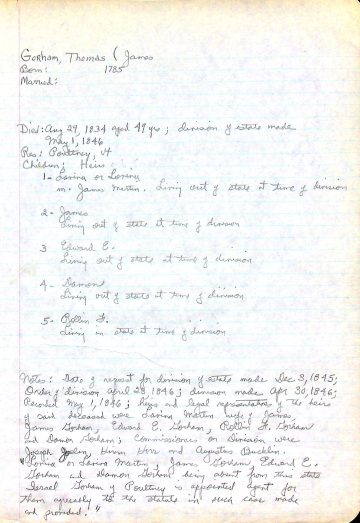 Gorham, Thomas ( James
Born: 1785
Married:
Died: Aug 29, 1834 aged 49 yrs ; division of estate made
May 1, 1846
Res: Poultney, Vt
Children; Heirs
1- Lorina or Loriny
m. James Martin. Living out of state at time of division
2- James
Living out of state at time of division
3 Edward E.
Living out of state at time of division
4- Damon
Living out of state at time of division
5- Rollin F.
Living in state at time of division
Notes: Date of request for division of estate made Dec 3, 1845;
Order of division April 28 1846; division made Apr 30, 1846;
Recorded May 1, 1846; Reps and legal representatives of the heirs
of said deceased were Lorina Martin wife of James
James Gorham, Edward E. Gorham, Rollin F. Gorham
and Damon Gorham; Commissioners on Division were
Joseph Joslin, Henry and Augustus Bucklin.
"Lorina or Lorina Martin, James Gorham, Edward E.
Gorham and Damon Gorham being absent from this state
Israel Gorham of Poultney is appointed agent for
them agreeably to the statute in such case made
and provided."